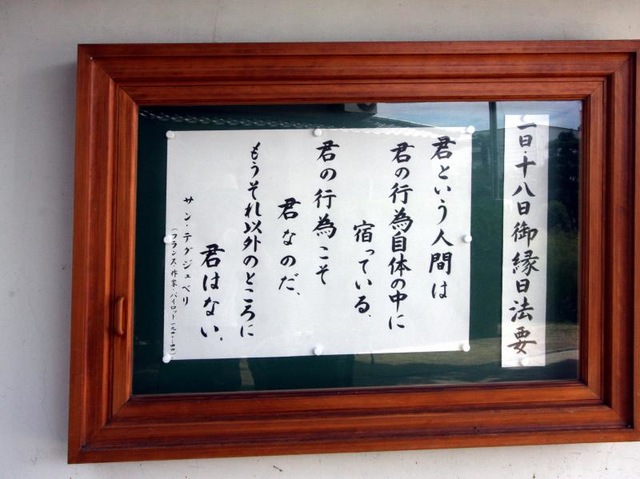 一日・十八日御縁日法要
君という人間は
君の行為自体の中に
宿っている。
君の行為こそ
君なのだ、
もうそれ以外のところに
君はない。
サン・テグジュペリ
(フランス 作家・パイロット